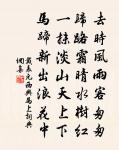 去時風雨客匆匆
歸路霜晴水樹紅
一抹淡山天上下
馬蹄新出浪花中
戴表元西興馬上詞典
網集